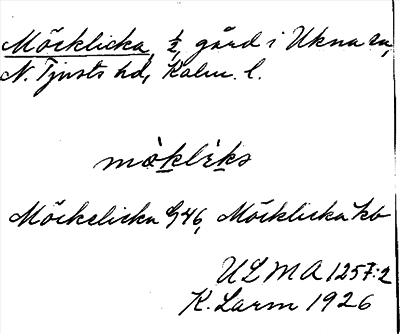 Möcklicka, ½, gård i Ukna sn,
N. Tjusts hd, Kalm. l.
mòklèks
Möckelicka G46, Möcklicka kb
ULMA 1257:2
K. Larm 1926